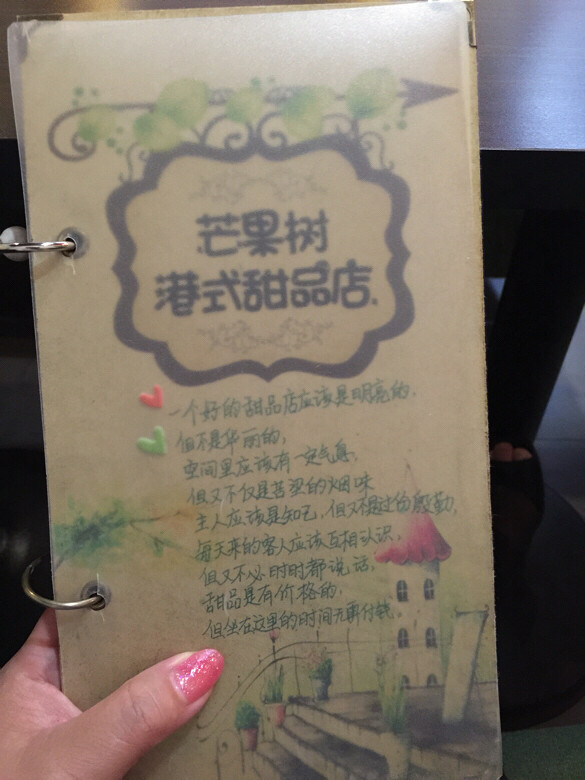 芒果树
港式甜品店
一个好的甜品店应该是明亮的,
但不是华丽的,
空间里应该有一定气息,
但又不仅是苦涩的烟味
主人应该是知己,但又不过分殷勤,
每天来的客人应该互相认识,
但又不必时时都说话,
甜品是有价格的,
但坐在这里的时间无需付钱。